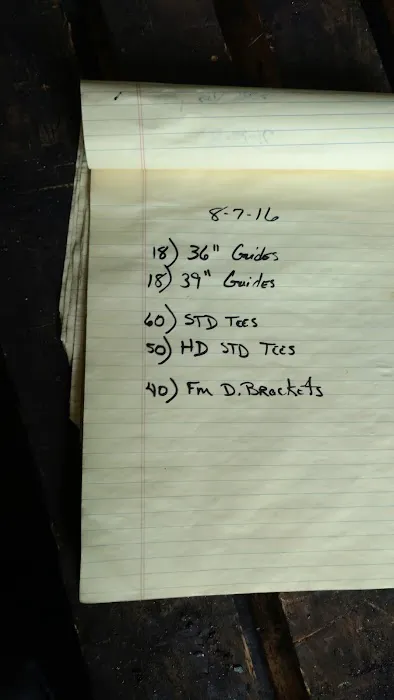 8-7-16
18) 36" Guides
18) 39" Guides
60) STD Tees
50) HD STD Tees
40) Fm D. Brackets